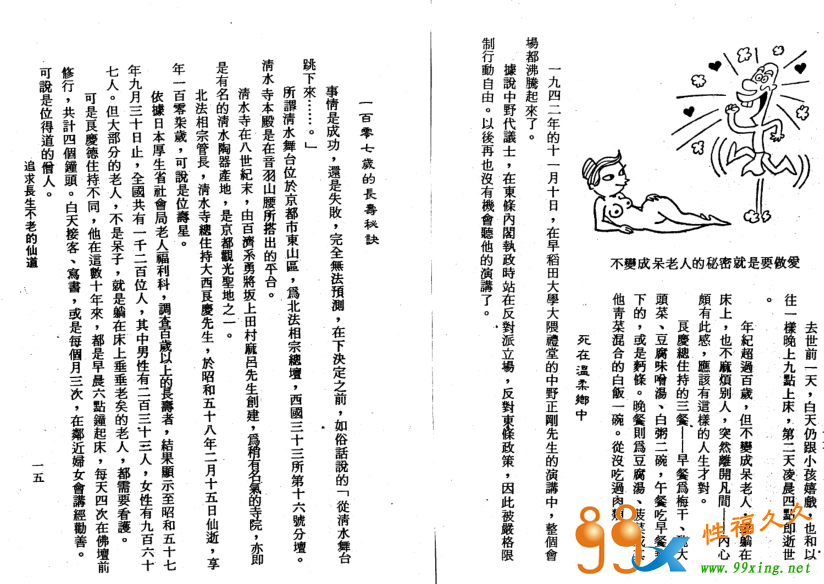 不變成呆老人的秘密就是要做愛
去世前一天，白天仍跟小孩嬉戲，也和以
往一樣晚上九點上床，第二天凌晨四點即逝世
。
年紀超過百歲，但不變成呆老人，躺在
床上，也不麻煩別人，突然離開凡間——內心
頗有此感，應該有這樣的人生才對。
良慶總住持的三餐——早餐為梅干、
頭菜、豆腐味噌湯、白粥二碗，午餐吃早餐
下的，或是麪條。晚餐則為豆腐湯、菠菜
他青菜混合的白飯一碗。從沒吃過肉類
死在溫柔鄉中
一九四二年的十一月十日，在早稻田大學大隈禮堂的中野正剛先生的演講中，整個會
場都沸騰起來了。
據說中野代議士，在東條內閣執政時站在反對派立場，反對東條政策，因此被嚴格限
制行動自由。以後再也沒有機會聽他的演講了。
性福久久
99x
www.99xing.net
一百零七歲的長壽秘訣
事情是成功，還是失敗，完全無法預測，在下決定之前，如俗話說的「從清水舞台
跳下來……。」
所謂清水舞台位於京都市東山區，為北法相宗總壇，西國三十三所第十六號分壇。
清水寺本殿是在音羽山腰所搭出的平台。
清水寺在八世紀末，由百濟系勇將坂上田村麻呂先生創建，為稍有名氣的寺院，亦即
是有名的清水陶器產地，是京都觀光聖地之一。
北法相宗管長，清水寺總住持大西良慶先生，於昭和五十八年二月十五日仙逝，享
年一百零柒歲，可說是位壽星。
依據日本厚生省社會局老人福利科，調查百歲以上的長壽者，結果顯示至昭和五十七
年九月三十日止，全國共有一千二百位人，其中男性有二百三十三人，女性有九百六十
七人。但大部分的老人，不是呆子，就是躺在床上垂垂老矣的老人，都需要看護。
可是良慶德住持不同，他在這數十年來，都是早晨六點鐘起床，每天四次在佛壇前
修行，共計四個鐘頭。白天接客、寫書，或是每個月三次，在鄰近婦女會講經勸善。
可說是位得道的僧人。
追求長生不老的仙道
一五